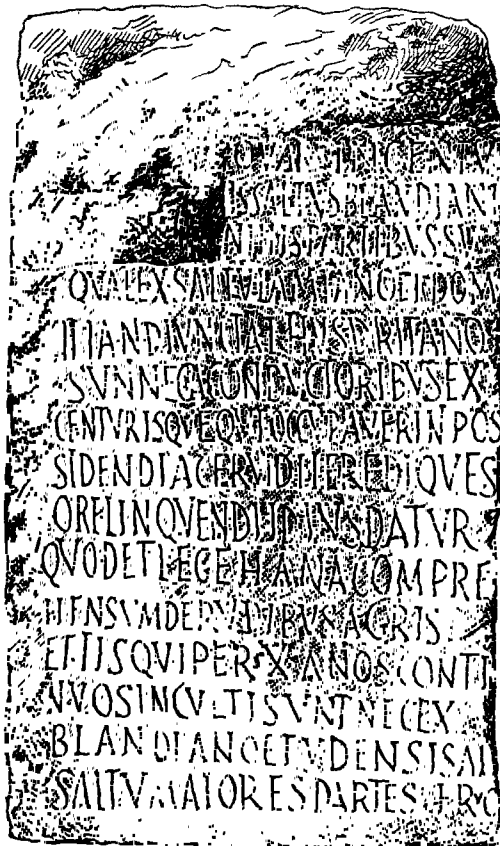 SALTVS BLANDIANI
PARTIBVS SV
QVA EX SALTV LAMIANO ET DOMI
TIANO IVNCTA THVSDRITANO
SVN NEC A CONDVCTORIBVS EX
CENTVRIS QVE QVI OCCVPAVERIN POS
SIDENDI AC FRVDI HEREDIQVE S
O RELINQVENDI ID IVS DATVR
QVOD ET LEGE HANA COMPRE
HENSVM DE RVDIBVS AGRIS
ET IIS QVI PER X ANOS CONTI
NVOS INCVLTI SVNT NEC EX
BLANDIANO ET VDENSI SAL
SALTV MAIORES PARTES FRVC